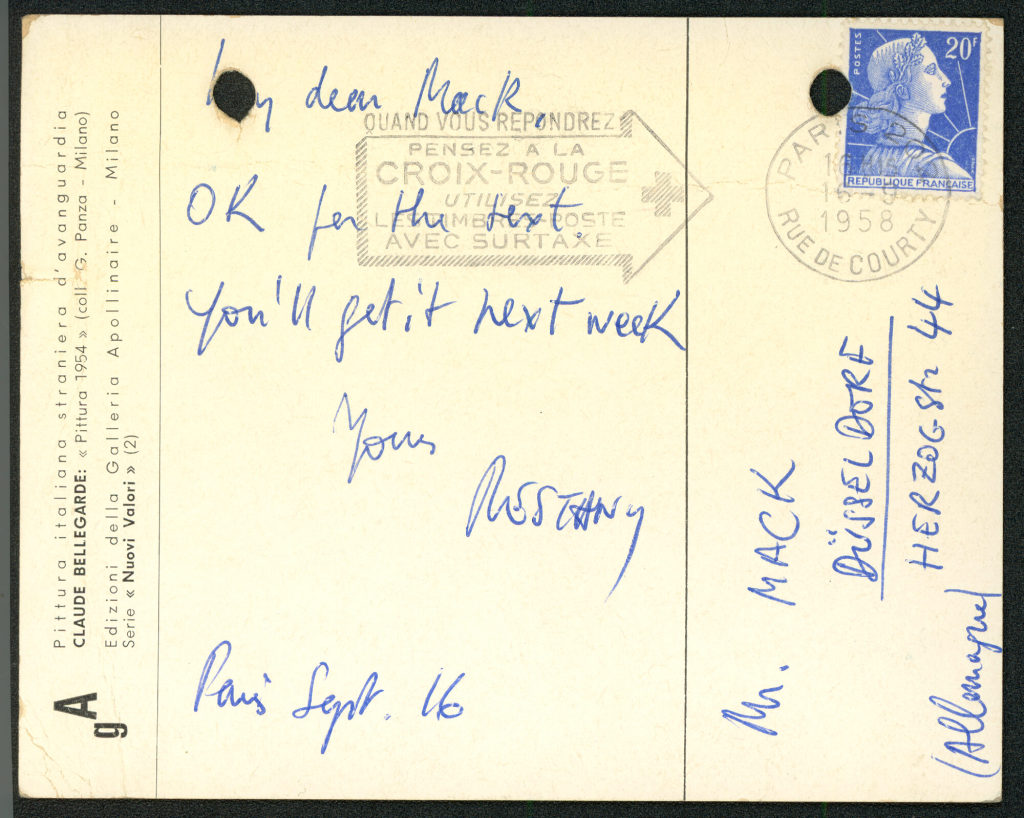 Pittura italiana straniera d'avanguardia
CLAUDE BELLEGARDE: « Pittura 1954 » (coll. G. Panza - Milano)
Edizioni della Galleria Apollinaire - Milano
Serie « Nuovi Valori » (2)
gA
My dear Mack,
OK for the text.
You'll get it next week
Yours
RESTANY
Paris Sept. 16
QUAND VOUS RÉPONDREZ
PENSEZ A LA
CROIX-ROUGE
UTILISEZ
LES TIMBRES-POSTE
AVEC SURTAXE
POSTES
20F
REPUBLIQUE FRANÇAISE
PARIS
16-9
1958
RUE DE COURTY
Mr. MACK
DÜSSELDORF
HERZOGStr 44
(Allemagne)